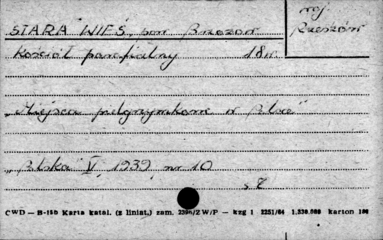 woj.
Rzeszów
STARA WIEŚ, pow. Brzozów
Kościół parafialny 18 w.
„Miejsca pielgrzymkowe w Polsce”
„Polska” V, 1939, nr 10
s. 7
CWD — B-18b Karta katal. (z liniat.) zam. 2396/Z W/P — kzg 1 2251/64 1.530.000 karton